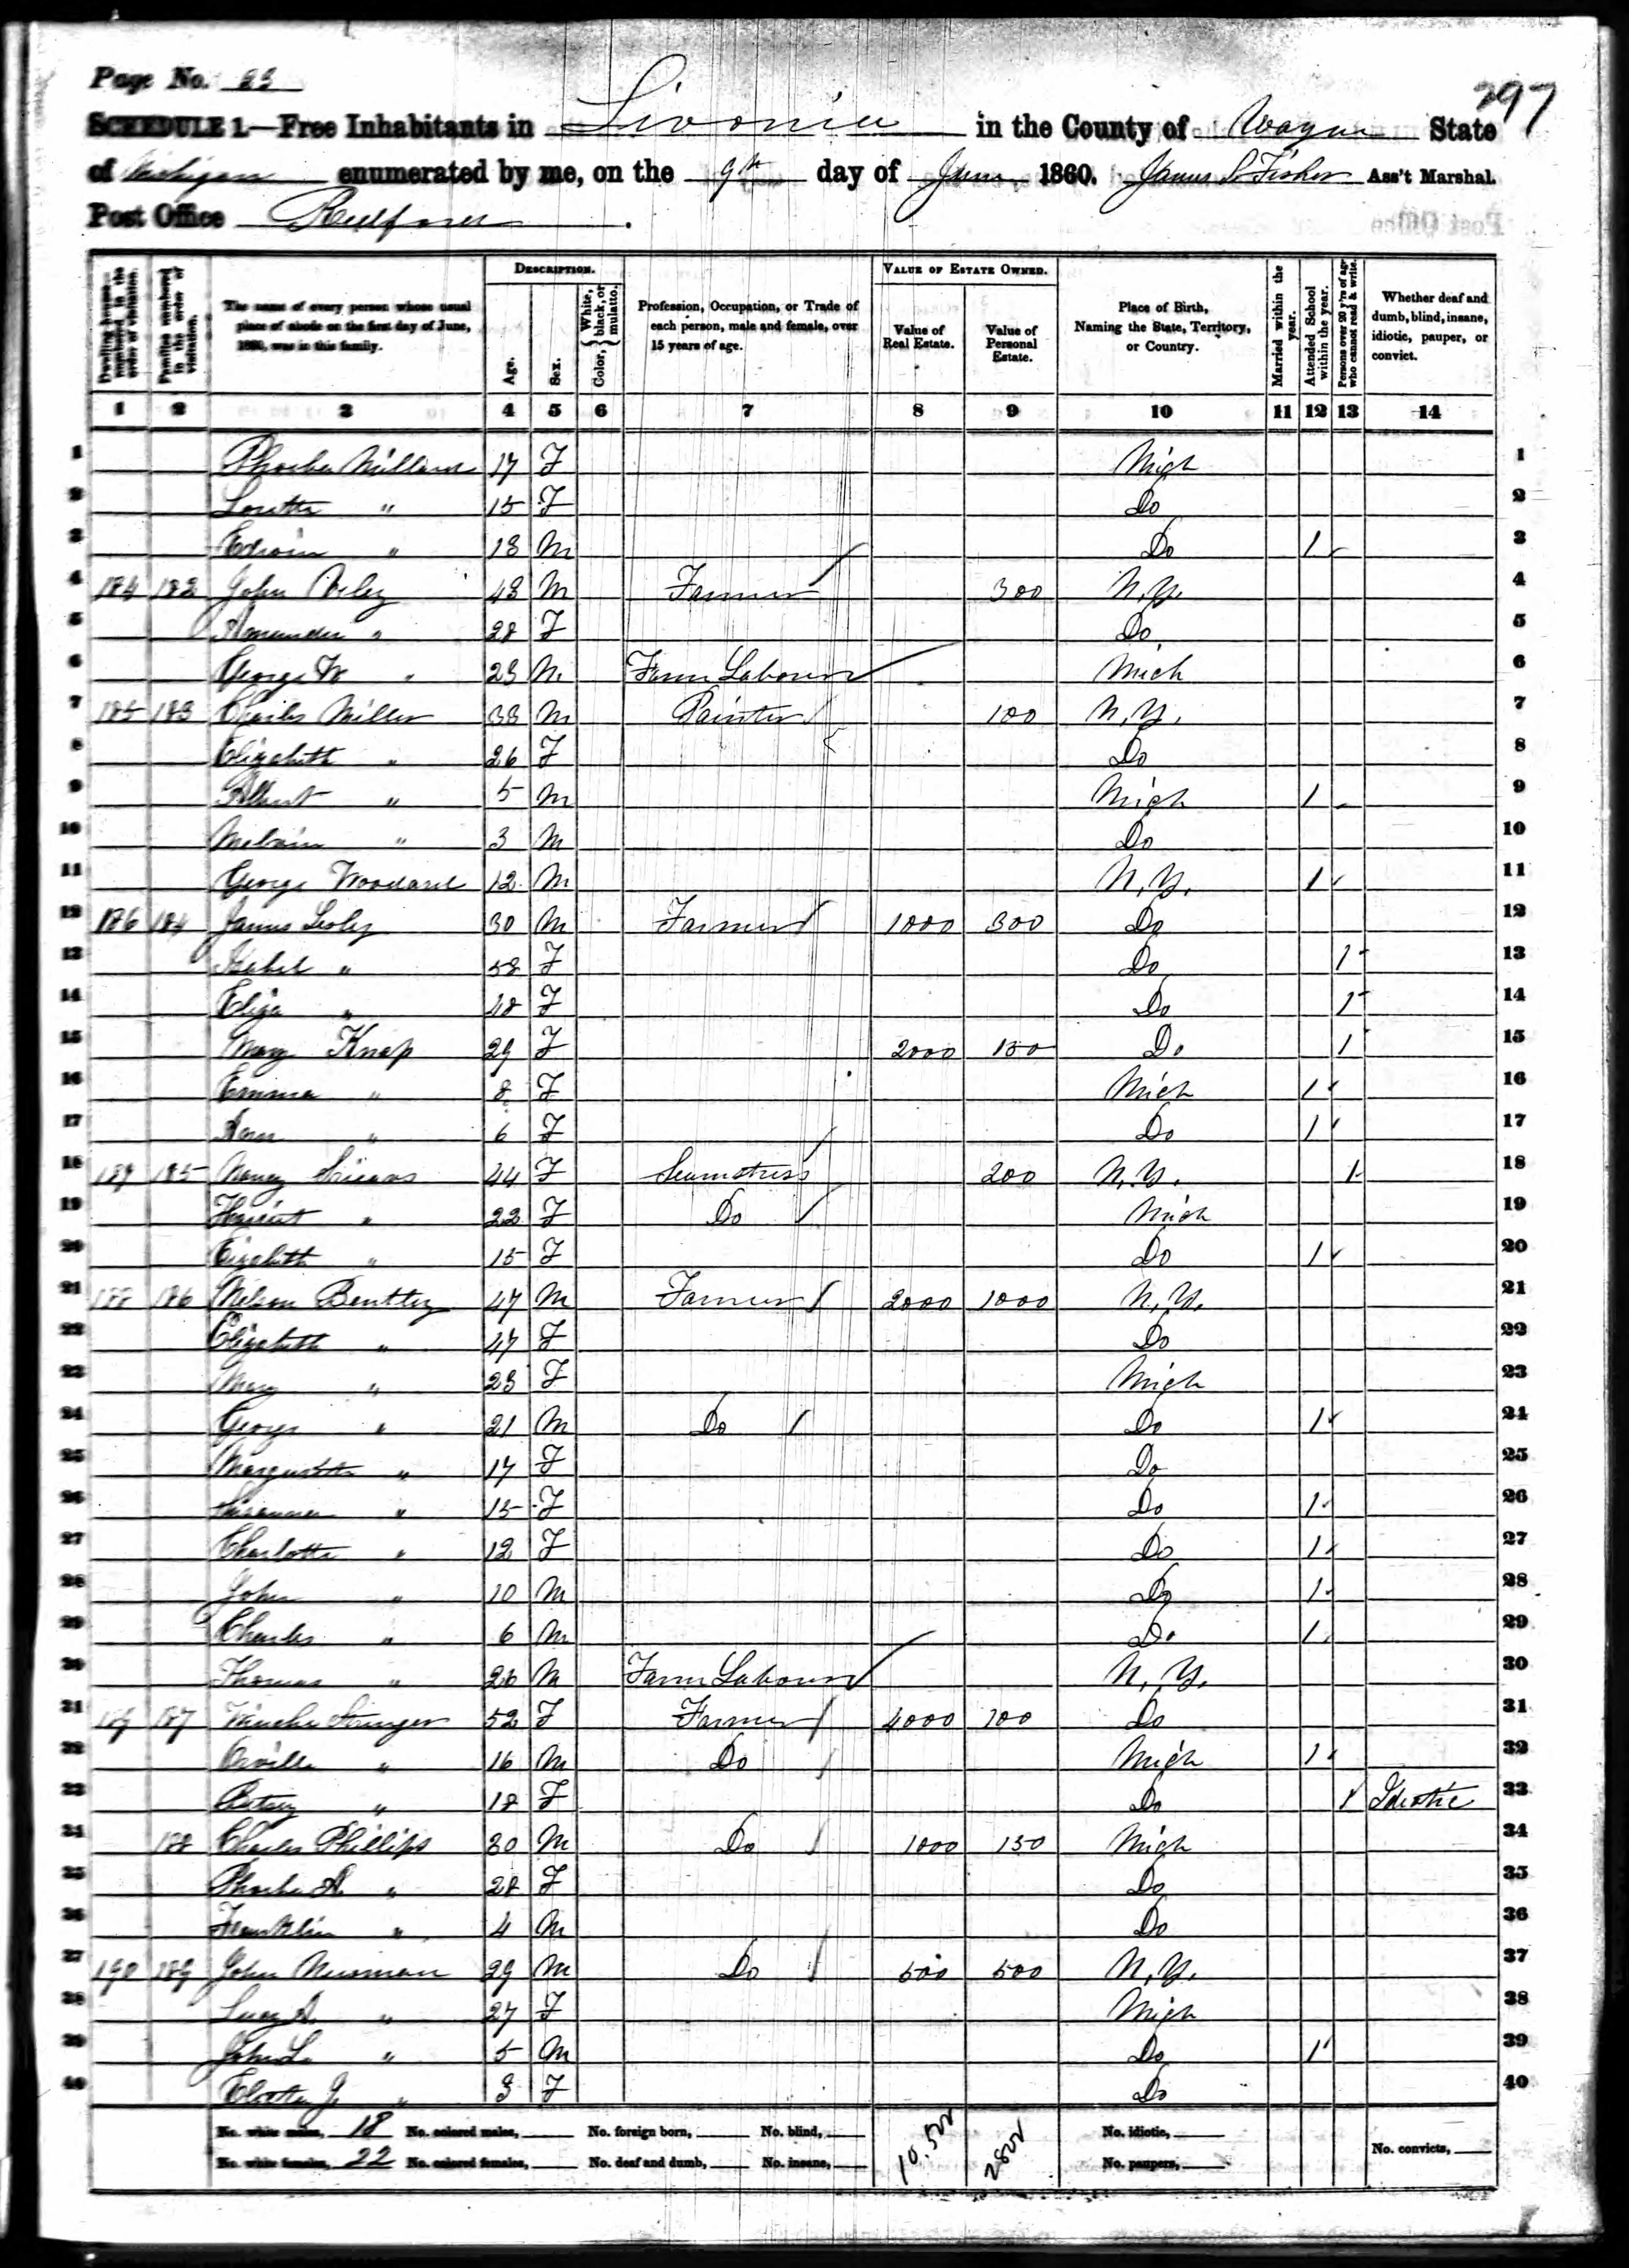 Page No. 23
297
SCHEDULE 1.—Free Inhabitants in Livonia in the County of Wayne State
of Michigan enumerated by me, on the 9th day of June 1860. James S. Fisher Ass't Marshal.
Post Office Redford.
DESCRIPTION. VALUE OF ESTATE OWNED.
Dwelling-houses numbered in the order of visitation. Families numbered in the order of visitation. The name of every person whose usual place of abode on the first day of June, 1860, was in this family. Age. Sex. Color, { White, black, or mulatto. Profession, Occupation, or Trade of each person, male and female, over 15 years of age. Value of Real Estate. Value of Personal Estate. Place of Birth, Naming the State, Territory, or Country. Married within the year. Attended School within the year. Persons over 20 y'rs of age who cannot read & write. Whether deaf and dumb, blind, insane, idiotic, pauper, or convict.
1 2 3 4 5 6 7 8 9 10 11 12 13 14
1 Phoebe Millard 17 F Mich 1
2 Loretta " 15 F Do 2
3 Edwin " 13 M Do 1 3
4 184 182 John 43 M Farmer 300 N.Y. 4
5 Amanda " 28 F Do 5
6 George W " 23 M Farm Labourer Mich 6
7 185 183 Charles Miller 33 M Painter 100 N.Y. 7
8 Elizabeth " 26 F Do 8
9 Albert " 5 M Mich 1 9
10 Melvin " 3 M Do 10
11 George Woodard 12 M N.Y. 1 11
12 186 184 James Lesley 30 M Farmer 1000 300 Do 12
13 Isabel " 58 F Do 1 13
14 Eliza " 48 F Do 1 14
15 Mary Knap 29 F 2000 150 Do 1 15
16 Emma " 8 F Mich 1 16
17 " 6 F Do 1 17
18 187 185 Nancy 44 F Seamstress 200 N.Y. 1 18
19 Harriet " 22 F Do Mich 19
20 Elizabeth " 15 F Do 1 20
21 188 186 Nelson Bentley 47 M Farmer 2000 1000 N.Y. 21
22 Elizabeth " 47 F Do 22
23 Mary " 23 F Mich 23
24 George " 21 M Do Do 1 24
25 Margurette " 17 F Do 25
26 Susanna " 15 F Do 1 26
27 Charlotte " 12 F Do 1 27
28 John " 10 M Do 1 28
29 Charles " 6 M Do 1 29
30 Thomas " 26 M Farm Labourer N.Y. 30
31 189 187 52 F Farmer 4000 100 Do 31
32 Orville " 16 M Do Mich 1 32
33 Betsey " 18 F Do 1 Idiotic 33
34 188 Charles Phillips 30 M Do 1000 150 Mich 34
35 Phoebe A. " 28 F Do 35
36 Franklin " 4 M Do 36
37 190 189 John Newman 29 M Do 500 500 N.Y. 37
38 Lucy A. " 27 F Mich 38
39 John L. " 5 M Do 1 39
40 " 3 F Do 40
No. white males, 18 No. colored males, No. foreign born, No. blind, 10.500 2800 No. idiotic,
No. white females, 22 No. colored females, No. deaf and dumb, No. insane, No. paupers, No. convicts,